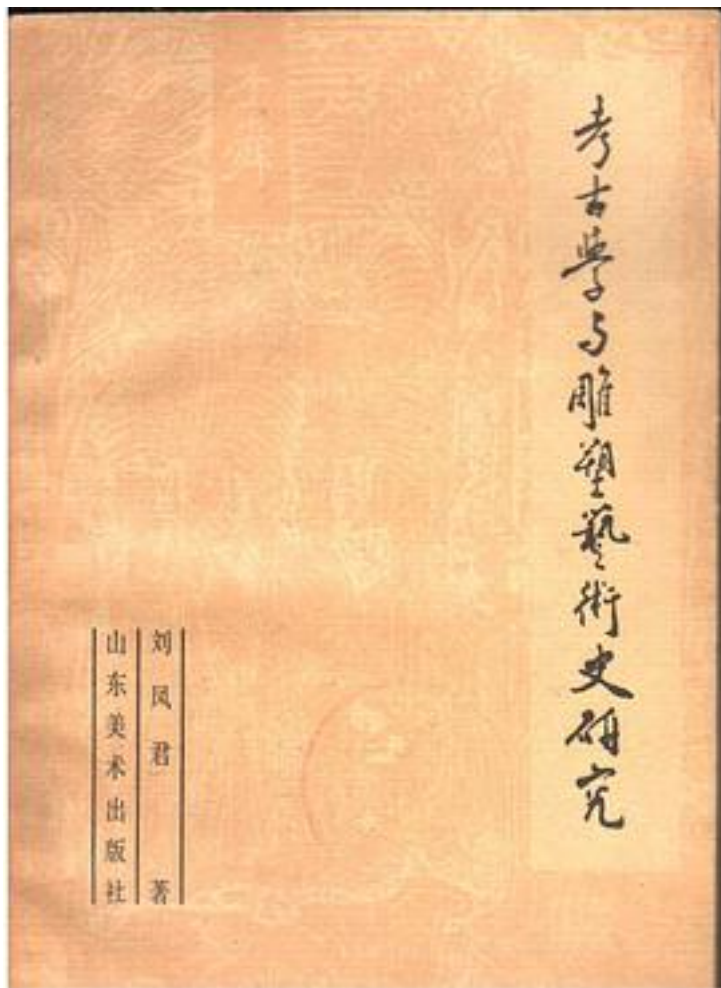 考古学与雕塑藝術史研究
刘凤君 著
山东美术出版社